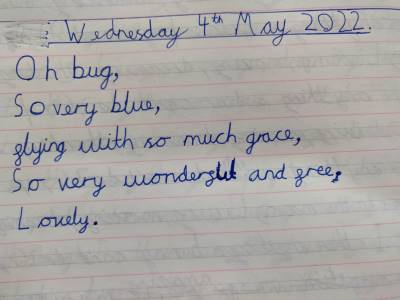 Wednesday 4th May 2022.
Oh bug,
So very blue,
flying with so much grace,
So very wonderful and free,
Lovely.